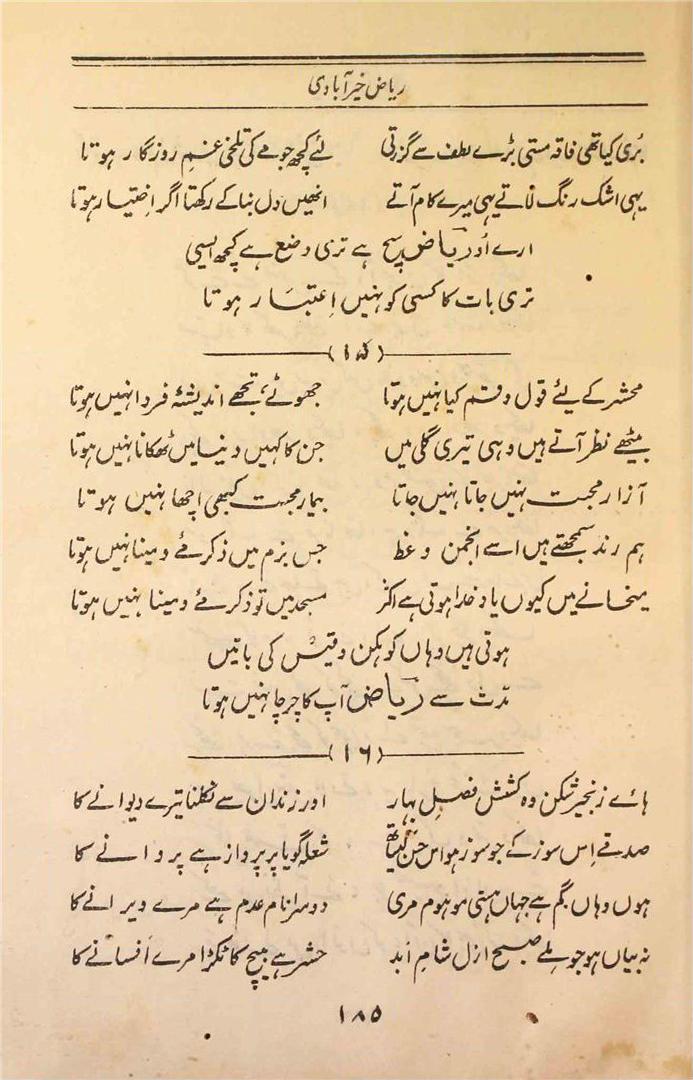 ریاض خیرآبادی
بُری کیا تھی فاقہ مستی بڑے لطف سے گزرتی لئے کچھ جو مے کی تلخی غمِ روزگار ہوتا
یہی اشک رنگ لاتے یہی میرے کام آتے انھیں دل بنا کے رکھتا اگر اختیار ہوتا
ارے او ریاض سچ ہے تری وضع ہے کچھ ایسی
تری بات کا کسی کو نہیں اِعتبار ہوتا
(۱۵)
محشر کے لیٔے قول و قسم کیا نہیں ہوتا جھوٹے، تجھے اندیشۂ فردا نہیں ہوتا
بیٹھے نظر آتے ہیں وہی تیری گلی میں جن کا کہیں دنیا میں ٹھکانا نہیں ہوتا
آزارِ محبت نہیں جاتا نہیں جاتا بیمارِ محبت کبھی اچھا نہیں ہوتا
ہم رند سمجھتے ہیں اسے انجمن وعظ جس بزم میں ذکر مۓ و مینا نہیں ہوتا
میخانے میں کیوں یادِ خدا ہوتی ہے اکثر مسجد میں تو ذکر مۓ و مینا نہیں ہوتا
ہوتی ہیں وہاں کوہکن و قیس کی باتیں
مدّت سے ریاض آپ کا چرچا نہیں ہوتا
(۱۶)
ہاے زنجیر شکن وہ کشش فصلِ بہار اور زندان سے نکلنا تیرے دیوانے کا
صدقے اِس سوز کے جو سوز ہو اس حسن کیساتھ شعلہ گویا پرِ پرواز ہے پروانے کا
ہوں وہاں گم ہے جہاں ہستی موہوم مری دوسرا نام عدم ہے مرے ویرانے کا
نہ بیاں ہو جو ملے صبح ازل شامِ اَبد حشر ہے بیچ کا ٹکڑا مرے اَفسانے کا
۱۸۵